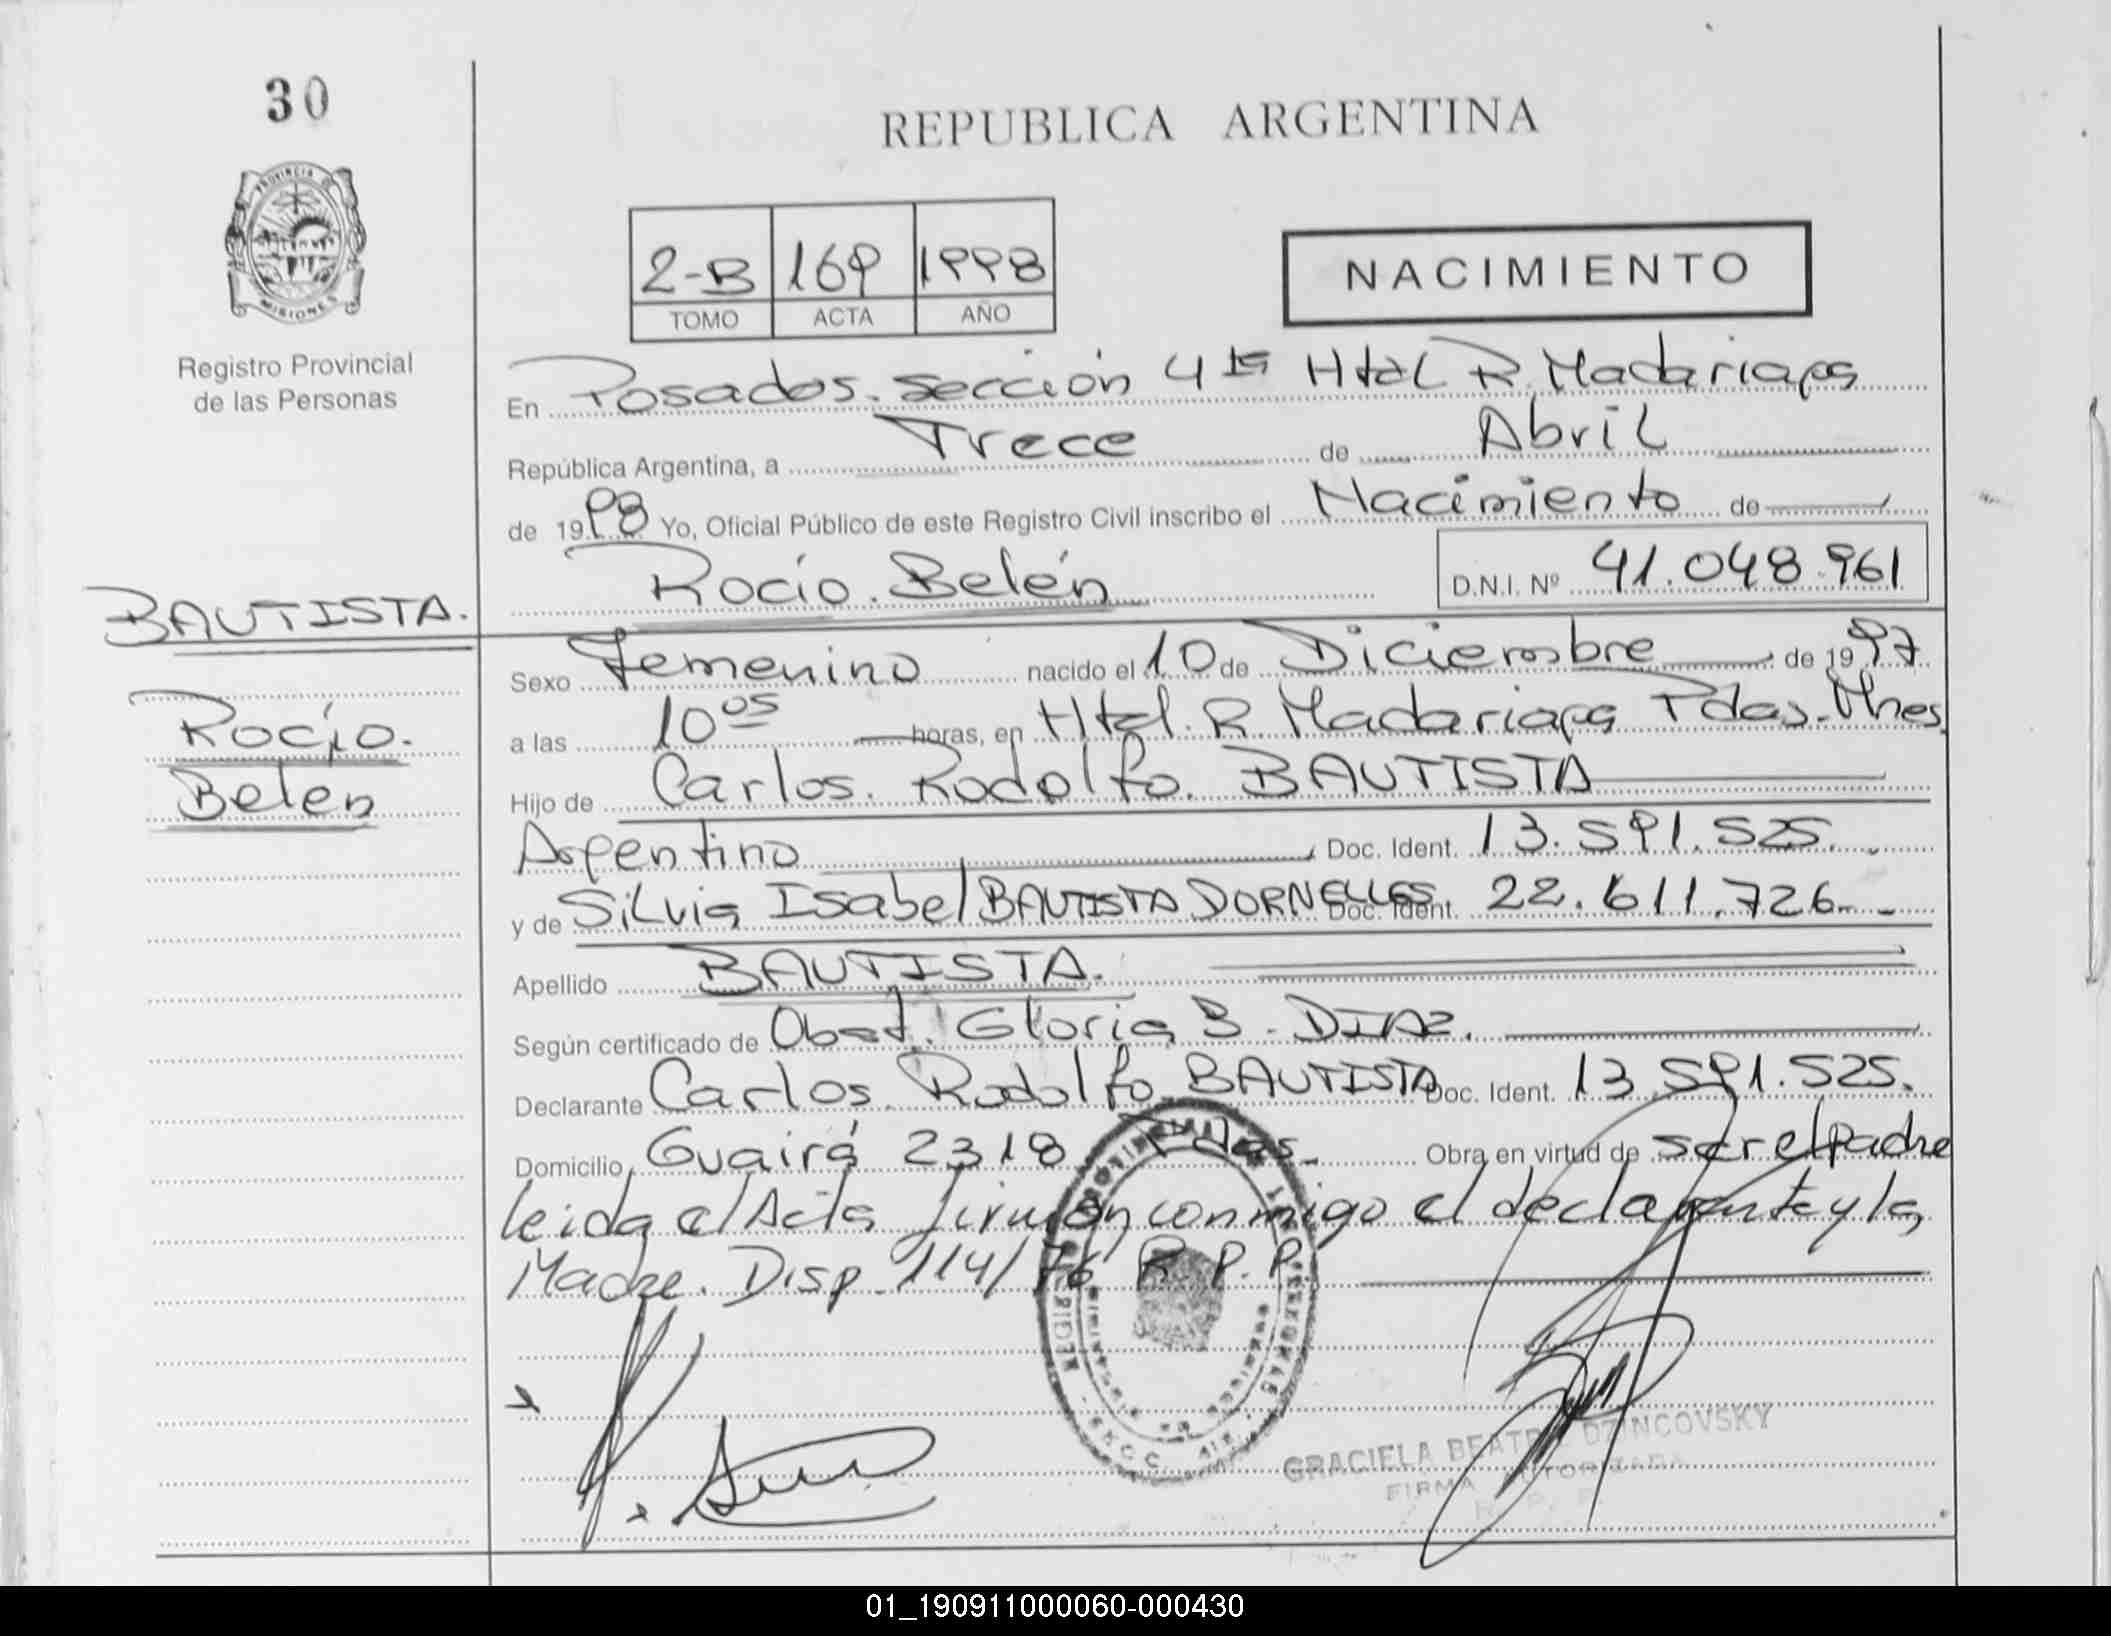 30
REPUBLICA ARGENTINA
PROVINCIA
MISIONES
2-B 169 1998
TOMO ACTA AÑO
NACIMIENTO
Registro Provincial
de las Personas
En Posadas. sección 4ta Htal R. Madariaga
República Argentina, a Trece de Abril
de 1998 Yo, Oficial Público de este Registro Civil inscribo el Nacimiento de
Rocío. Belén D.N.I. Nº 41.048.961
BAUTISTA.
Rocío.
Belén
Sexo Femenino nacido el 10 de Diciembre de 1997
a las 10 05 horas, en Htal. R Madariaga Pdas. Mnes
Hijo de Carlos. Rodolfo. BAUTISTA
Argentino Doc. Ident. 13.591.525.
y de Silvia Isabel BAUTISTA DORNELLES Doc. Ident. 22.611.726
Apellido BAUTISTA.
Según certificado de Obst. Gloria B. DIAZ.
Declarante Carlos. Rodolfo BAUTISTA Doc. Ident. 13.591.525.
Domicilio Guairá 2318 Pdas. Obra en virtud de ser el padre
leida el Acta firman conmigo el declarante y la
Madre. Disp. 114/76 R.P.P.
GRACIELA BEATRIZ DZINCOVSKY
FIRMA AUTORIZADA
R. P. P.
01_190911000060-000430